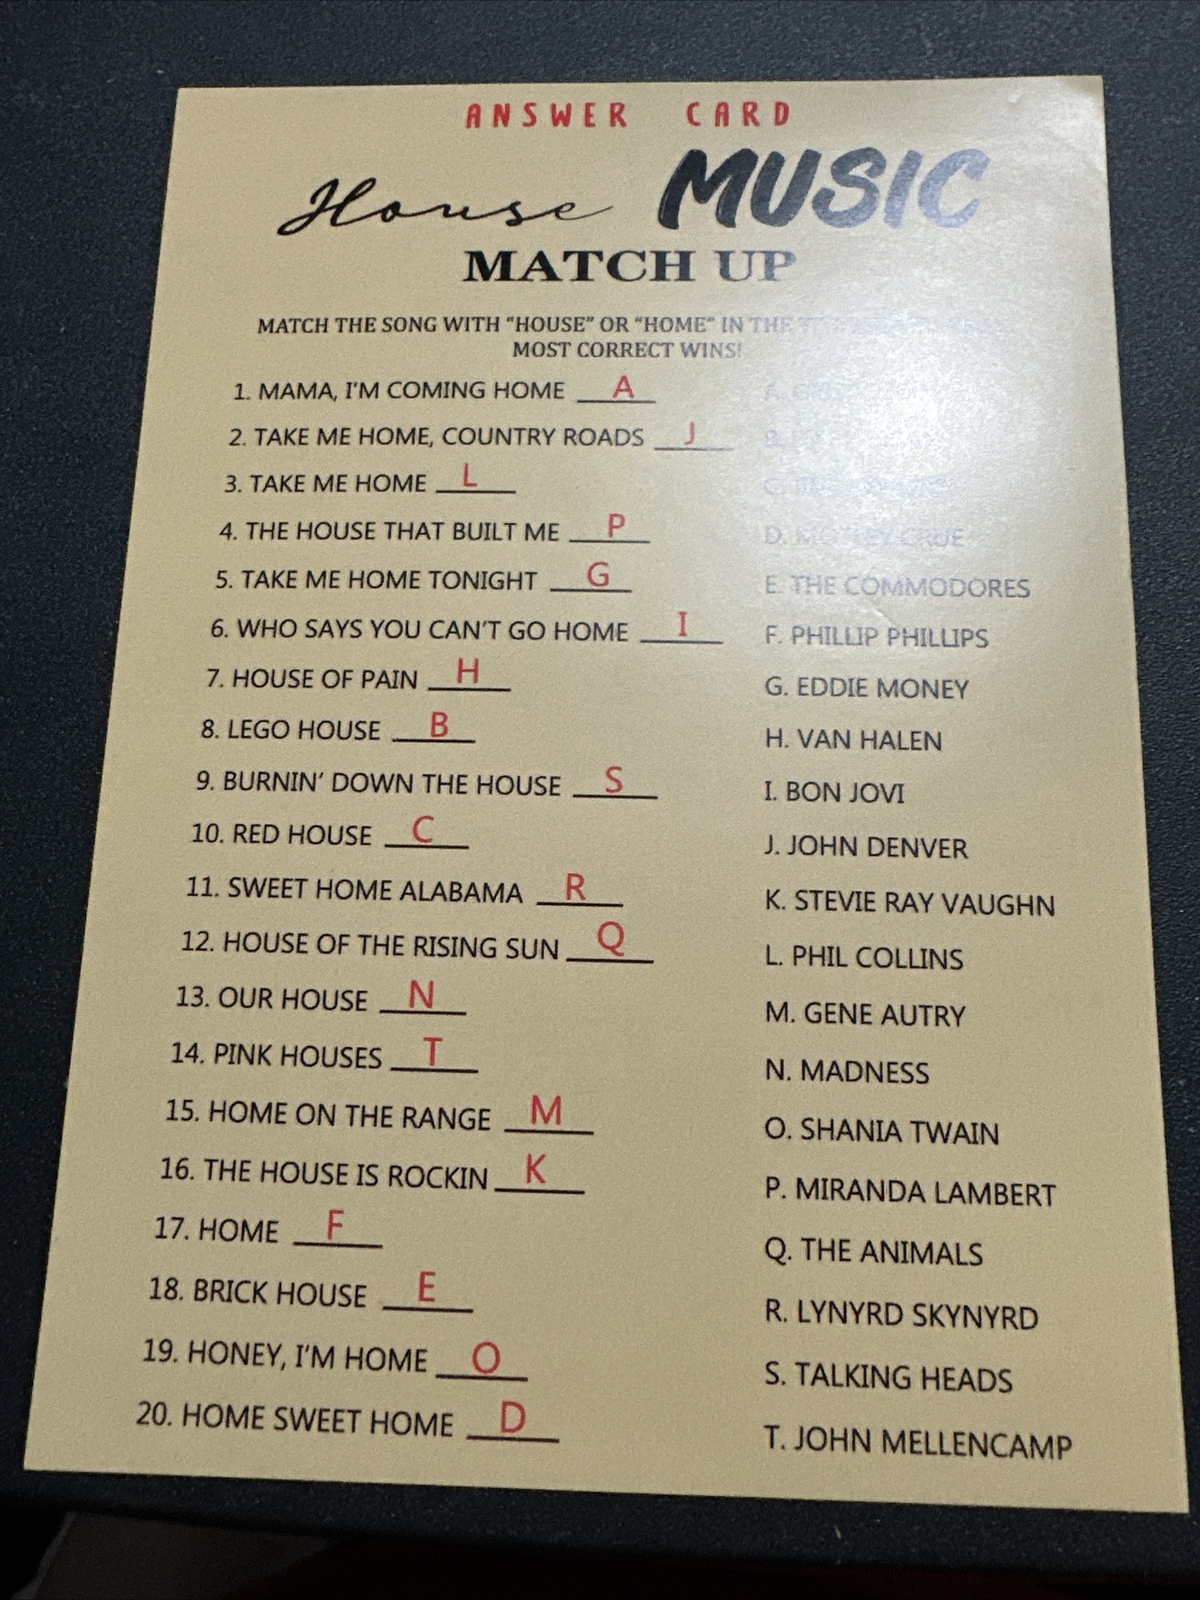 ANSWER CARD
House MUSIC
MATCH UP
MATCH THE SONG WITH "HOUSE" OR "HOME" IN THE
MOST CORRECT WINS!
1. MAMA, I'M COMING HOME A
2. TAKE ME HOME, COUNTRY ROADS J
3. TAKE ME HOME L
4. THE HOUSE THAT BUILT ME P
5. TAKE ME HOME TONIGHT G
6. WHO SAYS YOU CAN'T GO HOME I
7. HOUSE OF PAIN H
8. LEGO HOUSE B
9. BURNIN' DOWN THE HOUSE S
10. RED HOUSE C
11. SWEET HOME ALABAMA R
12. HOUSE OF THE RISING SUN Q
13. OUR HOUSE N
14. PINK HOUSES T
15. HOME ON THE RANGE M
16. THE HOUSE IS ROCKIN K
17. HOME F
18. BRICK HOUSE E
19. HONEY, I'M HOME O
20. HOME SWEET HOME D
A.
B.
C.
D. MOTLEY CRUE
E. THE COMMODORES
F. PHILLIP PHILLIPS
G. EDDIE MONEY
H. VAN HALEN
I. BON JOVI
J. JOHN DENVER
K. STEVIE RAY VAUGHN
L. PHIL COLLINS
M. GENE AUTRY
N. MADNESS
O. SHANIA TWAIN
P. MIRANDA LAMBERT
Q. THE ANIMALS
R. LYNYRD SKYNYRD
S. TALKING HEADS
T. JOHN MELLENCAMP